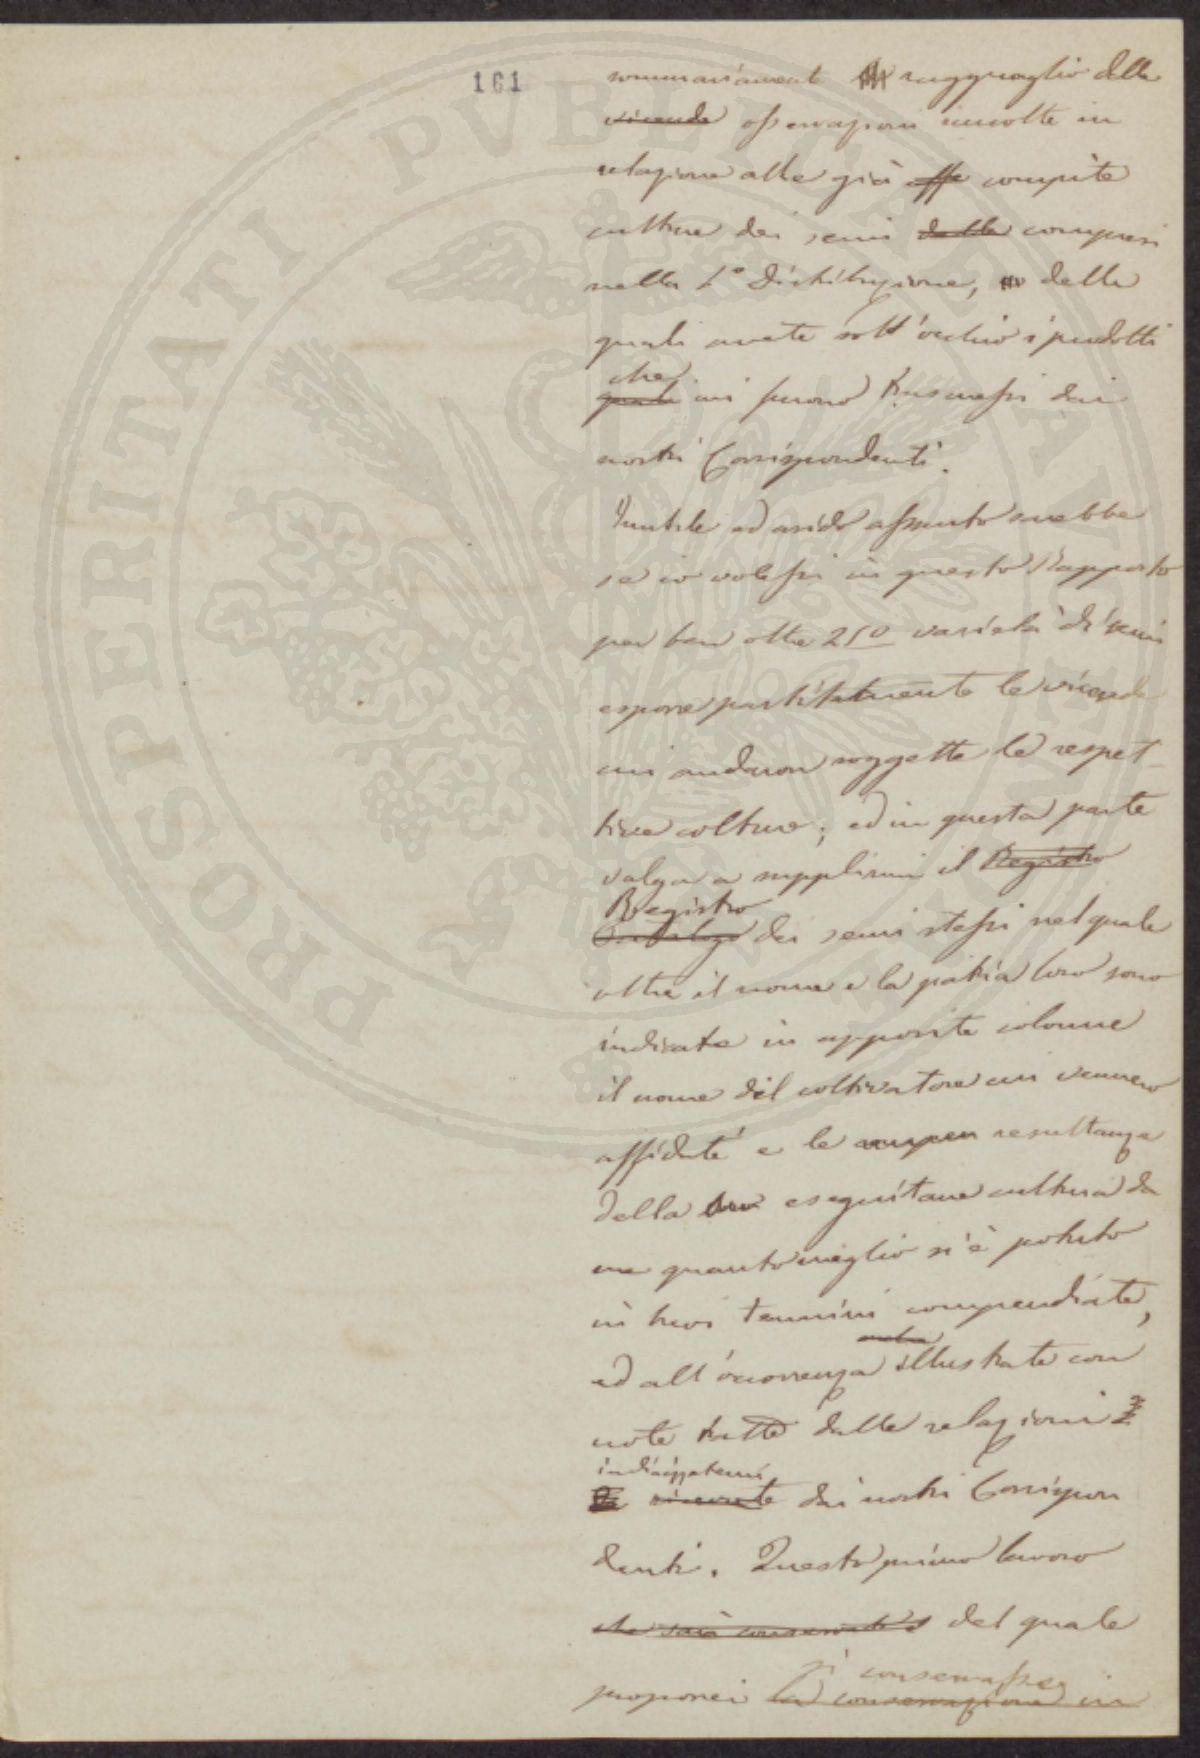 161
sommariamente ragguaglio delle
vicende osservazioni raccolte in
relazione alle già compite
culture dei semi delle compresi
nella 1° distribuzione, delle
quali avete sott'occhio i prodotti
che
quali mi furono trasmessi dai
nostri Corrispondenti.
Inutile ed arido assunto sarebbe
se io volessi in questo Rapporto
per ben oltre 250 varietà di semi
esporre partitamente le vicende
cui andaron soggette le respet-
tive colture; ed in questa parte
valga a supplirmi il Registro
Registro
Catalogo dei semi stessi nel quale
oltre il nome e la patria loro sono
indicate in apposite colonne
il nome del coltivatore cui vennero
affidate e le resultanze
della eseguitane cultura da
me quanto meglio si è potuto
in brevi termini compendiate,
ed all'occorrenza illustrate con
note tratte dalle relazioni
indirizzatemi
ricevute dai nostri Corrispon
denti. Questo primo lavoro
che sarà conservato del quale
si conservasse
proporrei la conservazione in
PROSPERITATI PVBLICAE AVGENDAE